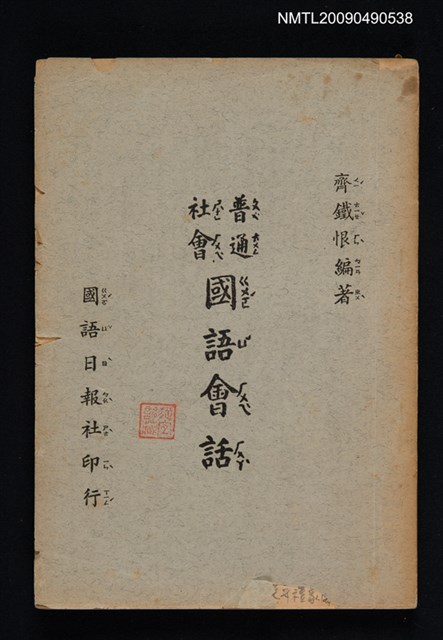 NMTL20090490538
齊鐵恨編著
普通
社會
國語會話
國語日報社印行